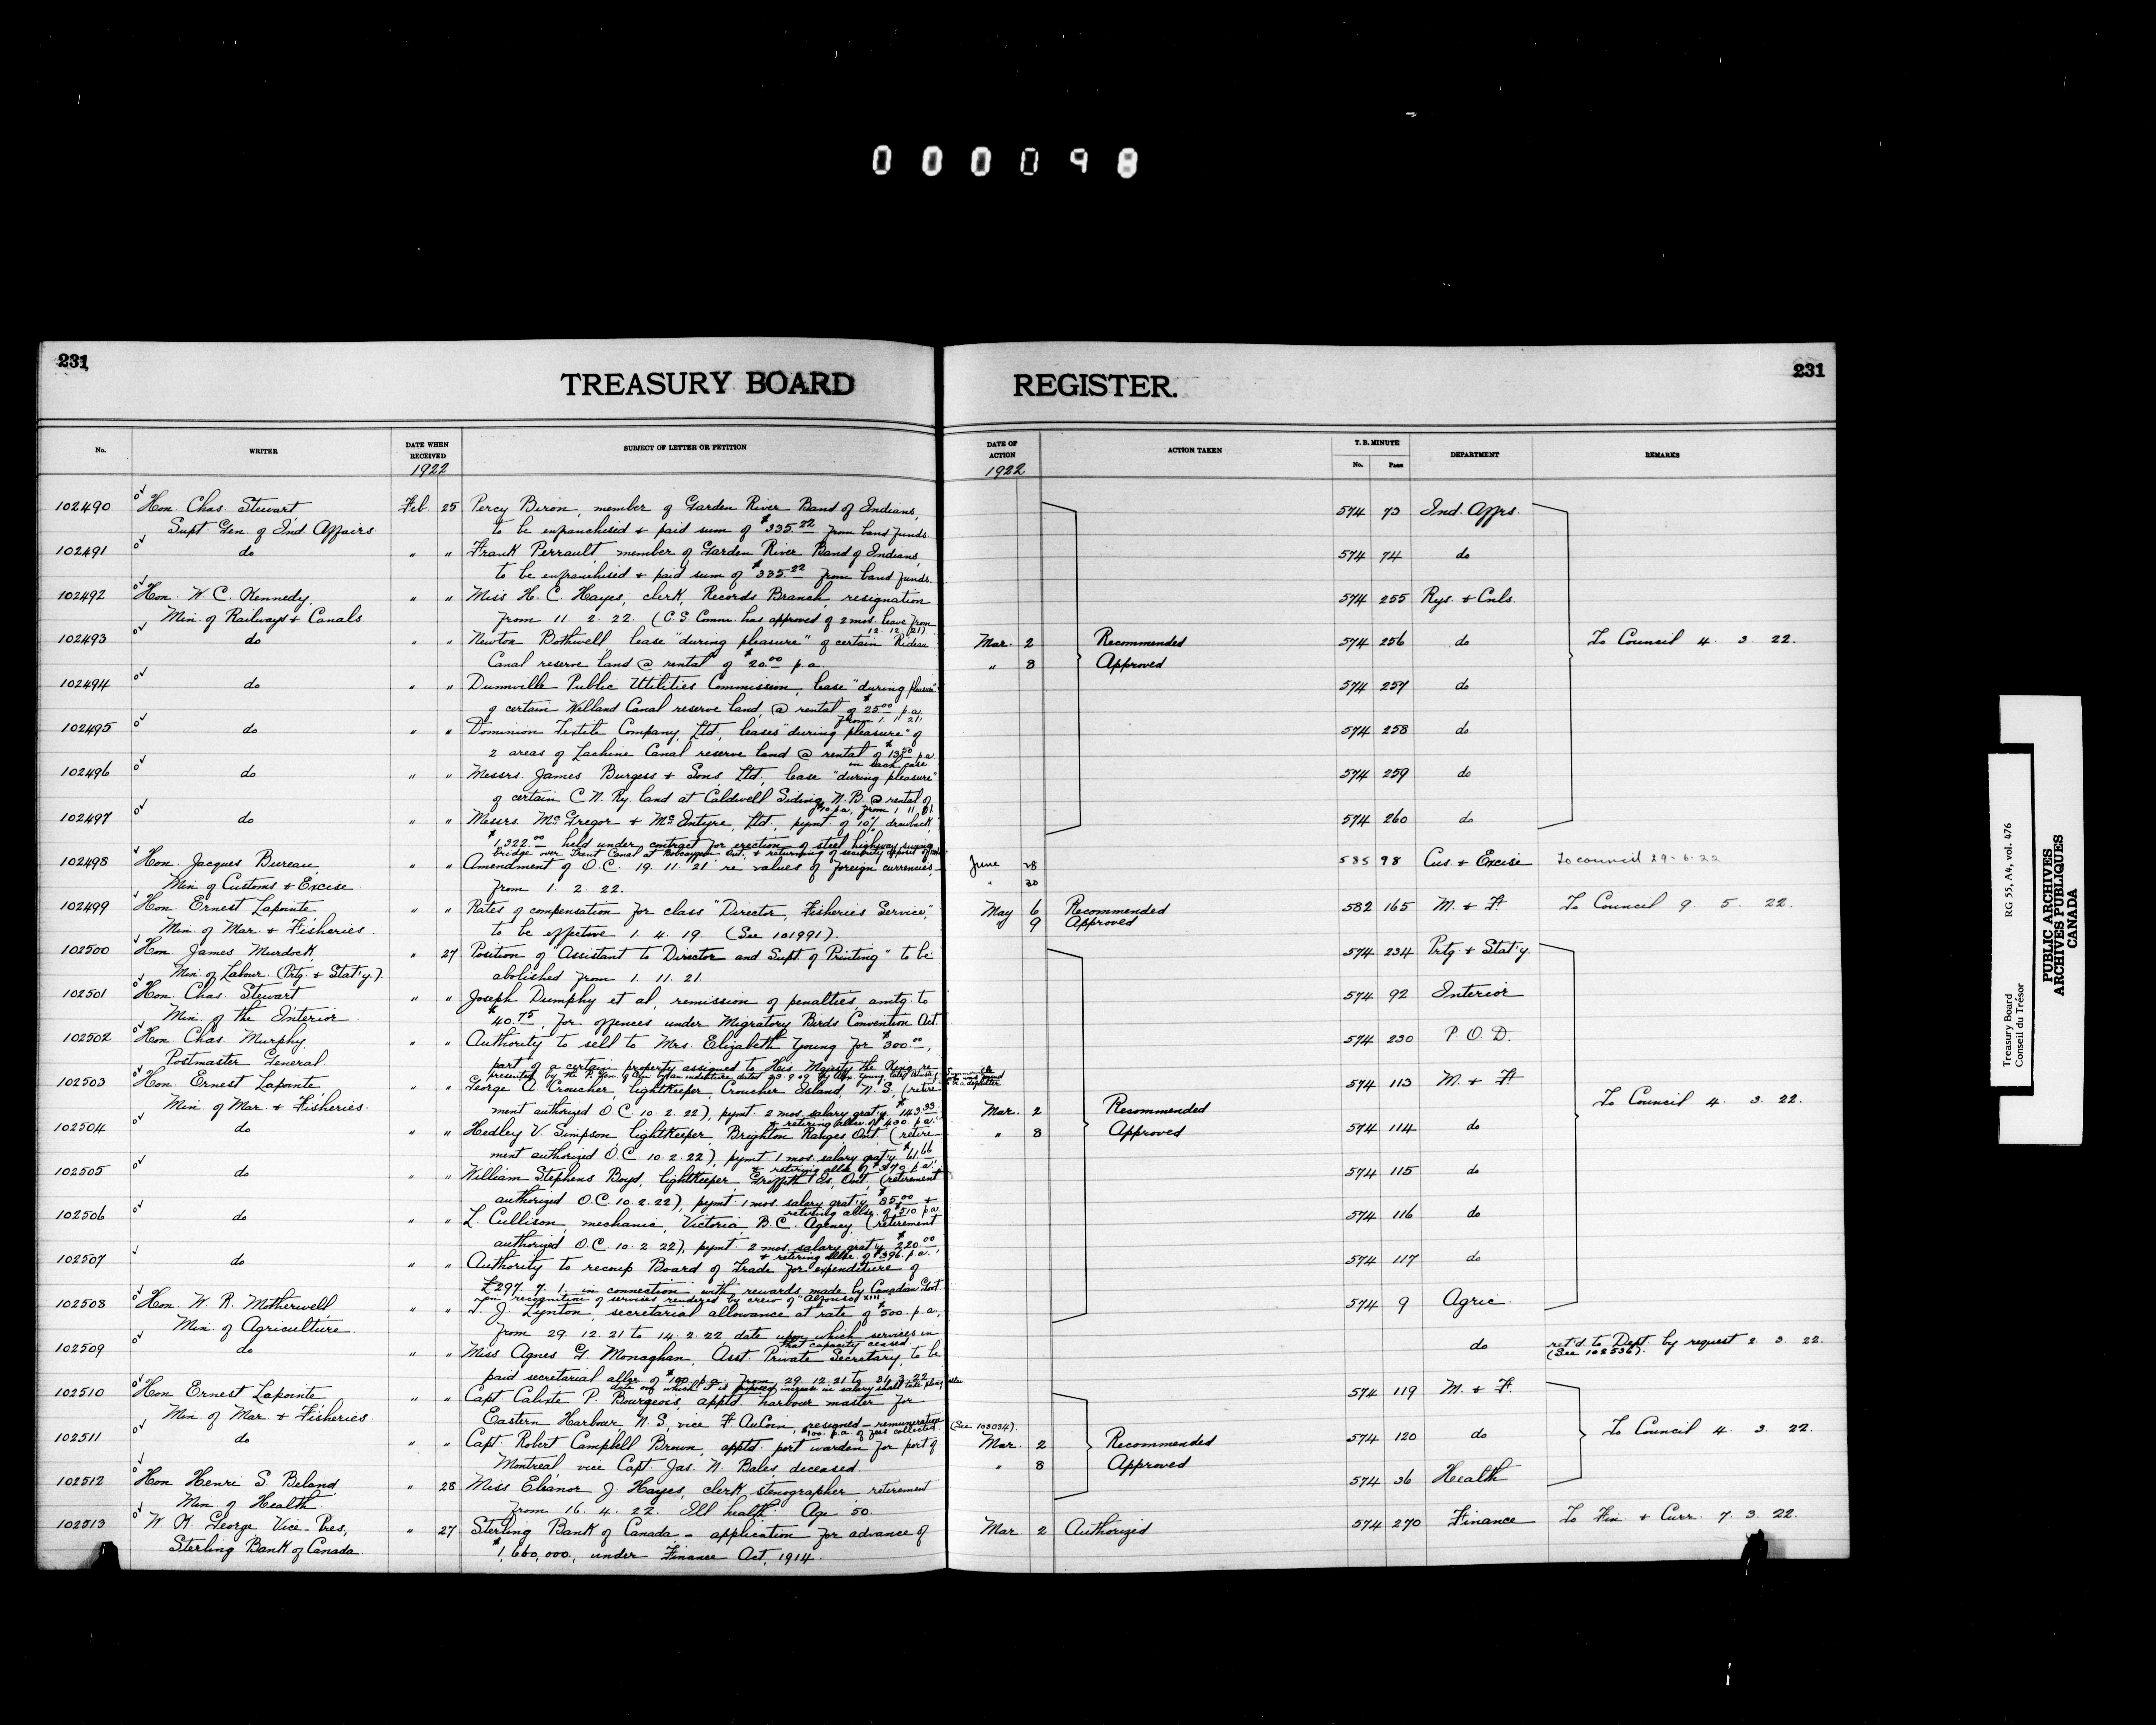 000098
231
TREASURY BOARD REGISTER.
231
No.
WRITER
DATE WHEN RECEIVED
1922
SUBJECT OF LETTER OR PETITION
DATE OF ACTION
1922
ACTION TAKEN
T. B. MINUTE
No.
PAGE
DEPARTMENT
REMARKS
102490 Hon. Chas. Stewart Feb. 25 Percy Biron, member of Garden River Band of Indians, 574 73 Ind. Affrs.
Supt. Gen. of Ind. Affairs to be enfranchised + paid sum of $335.22 from band funds.
102491 do " " Frank Perrault, member of Garden River Band of Indians, 574 74 do
to be enfranchised + paid sum of $335.22 from band funds.
102492 Hon. W. C. Kennedy, " " Miss H. C. Hayes, clerk, Records Branch, resignation 574 255 Rys. + Cnls.
Min. of Railways + Canals. from 11. 2. 22. (C. S. Comm. has approved of 2 mos. leave from
12. 12. 21)
102493 do " " Newton Bothwell lease "during pleasure" of certain Rideau Mar. 2 Recommended 574 256 do To Council 4. 3. 22.
Canal reserve land @ rental of $20.00 p.a. " 8 Approved
102494 do " " Dunnville Public Utilities Commission, lease "during pleasure" 574 257 do
of certain Welland Canal reserve land, @ rental of $25.00 p.a.
from 1. 1. 21.
102495 do " " Dominion Textile Company, Ltd., leases "during pleasure" of 574 258 do
2 areas of Lachine Canal reserve land @ rental of $13.50 p.a.
in each case.
102496 do " " Messrs. James Burgess + Sons, Ltd., lease "during pleasure" 574 259 do
of certain C. N. Ry. land at Caldwell Siding, N. B. @ rental of
$10 p.a. from 1. 11. 21.
102497 do " " Messrs. McGregor + McIntyre, Ltd., pymt. of 10% drawback, 574 260 do
$1,322.00 held under contract for erection of steel highway swing
bridge over Trent Canal at Bobcaygeon, Ont., + returning of security deposit of
102498 Hon. Jacques Bureau, " " Amendment of O.C. 19. 11. 21 re values of foreign currencies, June 28 585 98 Cus. + Excise To council 29-6-22
Min. of Customs + Excise. from 1. 2. 22. " 30
102499 Hon. Ernest Lapointe, " " Rates of compensation for class "Director, Fisheries Service," May 6 Recommended 582 165 M. + F. To Council 9. 5. 22.
Min. of Mar. + Fisheries. to be effective 1. 4. 19. (See 101991). " 9 Approved
102500 Hon. James Murdock, " 27 Position of "Assistant to Director and Supt. of Printing" to be 574 234 Prtg. + Stat'y.
Min. of Labour. (Prtg. + Stat'y.) abolished from 1. 11. 21.
102501 Hon. Chas. Stewart " " Joseph Dumphy et al, remission of penalties, amtg. to 574 92 Interior
Min. of the Interior. $40.75, for offences under Migratory Birds Convention Act.
102502 Hon. Chas. Murphy, " " Authority to sell to Mrs. Elizabeth Young for $300.00, 574 230 P. O. D.
Postmaster General. part of a certain property assigned to His Majesty the King, re-
presented by the P. Gen. of Can. by an indenture dated 23. 9. 09 by Wm. Young
102503 Hon. Ernest Lapointe " " George A. Croucher, lightkeeper, Croucher Island, N. S. (retire- 574 113 M. + F.
Min. of Mar. + Fisheries. ment authorized O.C. 10. 2. 22), pymt. 2 mos. salary grat'y. $143.33 Mar. 2 Recommended To Council 4. 3. 22.
+ retiring allce. of $430. p.a.
102504 do " " Hedley V. Simpson, lightkeeper, Brighton Ranges, Ont. (retire- " 8 Approved 574 114 do
ment authorized O.C. 10. 2. 22), pymt. 1 mos. salary grat'y. $61.66
+ retiring allce. of $370 p.a.
102505 do " " William Stephens Boyd, lightkeeper, Griffith Is., Ont. (retirement 574 115 do
authorized O.C. 10. 2. 22), pymt. 1 mos. salary grat'y. $85.00 +
retiring allce. of $510 p.a.
102506 do " " L. Cullison, mechanic, Victoria B. C. Agency, (retirement 574 116 do
authorized O.C. 10. 2. 22), pymt. 2 mos. salary grat'y. $220.00
+ retiring allce. of $396. p.a.
102507 do " " Authority to recoup Board of Trade for expenditure of 574 117 do
£297. 7. 1. in connection with rewards made by Canadian Govt.
in recognition of services rendered by crew of "Alfonso XIII"
102508 Hon. W. R. Motherwell " " T. J. Lynton, secretarial allowance at rate of $500. p.a., 574 9 Agric.
Min. of Agriculture. from 29. 12. 21 to 14. 2. 22, date upon which services in
that capacity ceased.
102509 do " " Miss Agnes G. Monaghan, Asst. Private Secretary, to be do ret'd. to Dept. by request 2. 3. 22.
(See 102536).
paid secretarial allce. of $100 p.a. from 29. 12. 21 to 31. 3. 22,
date on which it is proposed increase in salary shall take place
102510 Hon Ernest Lapointe " " Capt. Calixte P. Bourgeois, apptd. harbour master for 574 119 M. + F.
Min. of Mar. + Fisheries. Eastern Harbour, N. S., vice F. AuCoin, resigned - remuneration (See 103034).
$100. p.a. of fees collected.
102511 do " " Capt. Robert Campbell Brown, apptd. port warden for port of Mar. 2 Recommended 574 120 do To Council 4. 3. 22.
Montreal, vice Capt. Jas. N. Bales, deceased. " 8 Approved
102512 Hon Henri S. Beland, " 28 Miss Eleanor J. Hayes, clerk stenographer, retirement 574 36 Health
Min. of Health. from 16. 4. 22. Ill health. Age 50.
102513 W. K. George, Vice-Pres., " 27 Sterling Bank of Canada - application for advance of Mar. 2 Authorized 574 270 Finance To Fin. + Curr. 7. 3. 22.
Sterling Bank of Canada. $1,660,000, under Finance Act, 1914.
Treasury Board RG 55, A4, vol. 476
Conseil du Trésor
PUBLIC ARCHIVES
ARCHIVES PUBLIQUES
CANADA